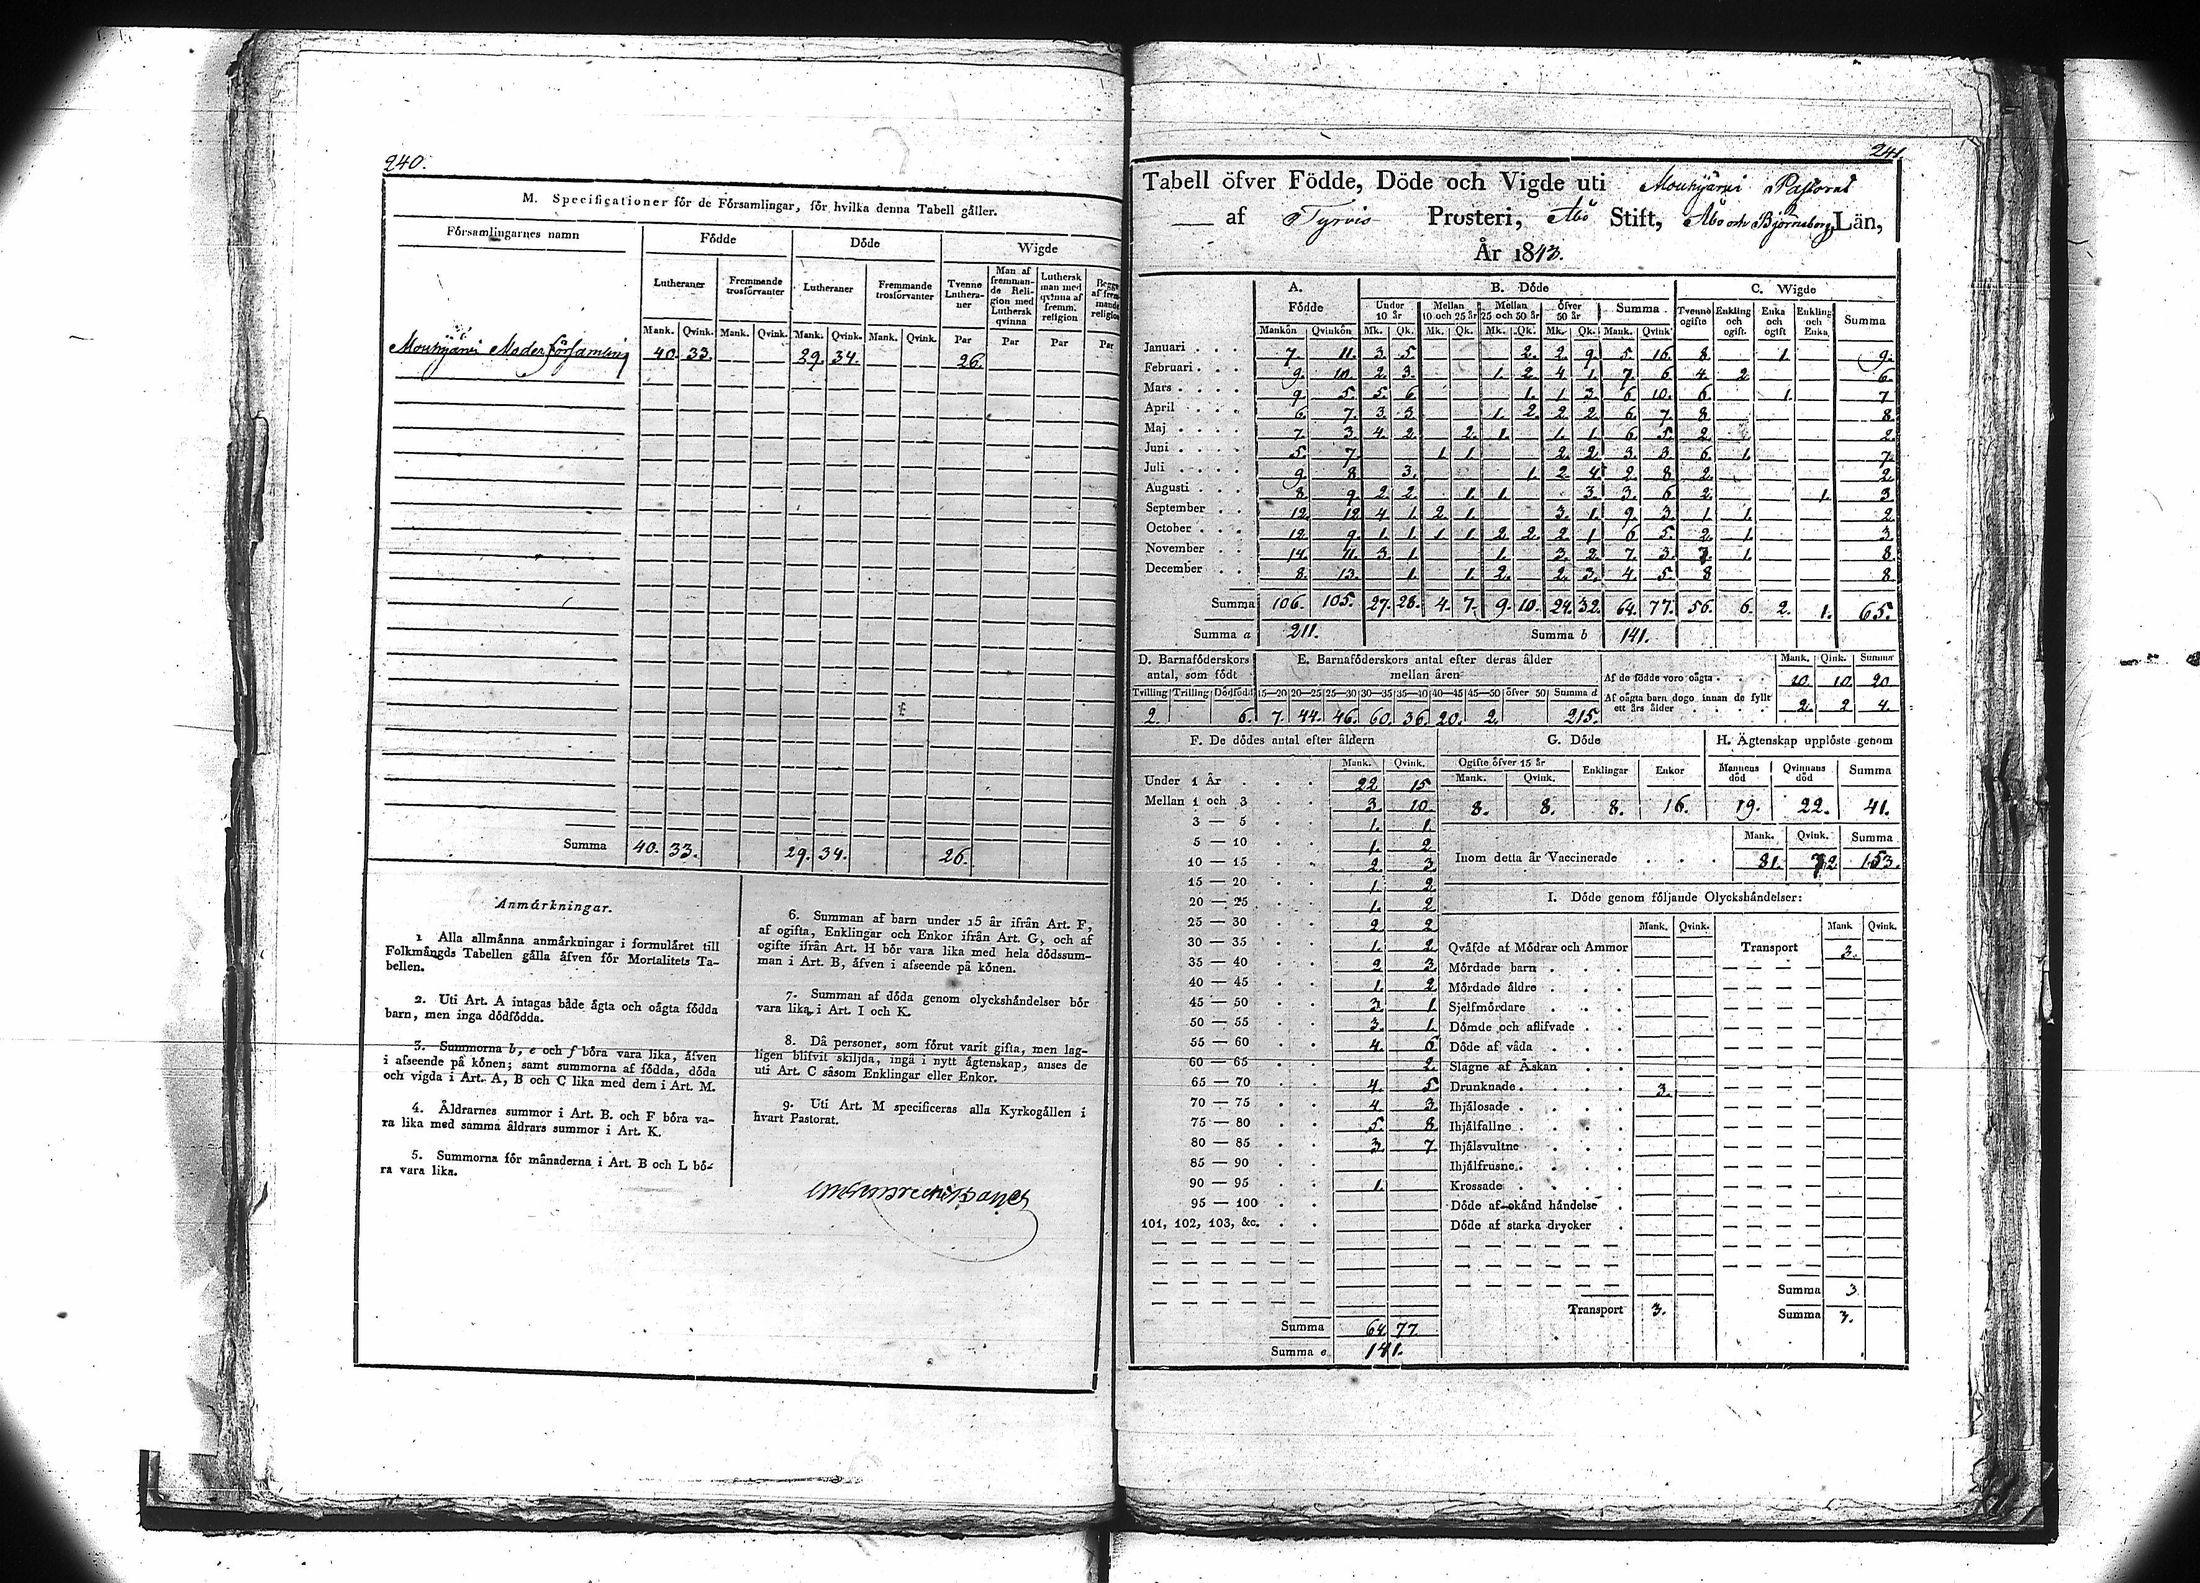 240.
M. Specificationer för de Församlingar, för hvilka denna Tabell gäller.
Församlingarnes namn
Födde
Döde
Wigde
Lutheraner
Fremmande trosförvanter
Lutheraner
Fremmande trosförvanter
Tvenne Lutheraner
Man af fremmande Religion med Luthersk qvinna
Luthersk man med qvinna af fremm. religion
Begge af fremmande religion
Mank. Qvink. Mank. Qvink. Mank. Qvink. Mank. Qvink. Par Par Par Par
Mouhijärvi Moderförsamling 40. 33. 29. 34. 26.
Summa 40. 33. 29. 34. 26.
Anmärkningar.
1 Alla allmänna anmärkningar i formuläret till
Folkmängds Tabellen gälla äfven för Mortalitets Ta-
bellen.
2. Uti Art. A intagas både ägta och oägta födda
barn, men inga dödfödda.
3. Summorna b, e och f böra vara lika, äfven
i afseende på könen; samt summorna af födda, döda
och vigda i Art. A, B och C lika med dem i Art. M.
4. Åldrarnes summor i Art. B. och F böra va-
ra lika med samma åldrars summor i Art. K.
5. Summorna för månaderna i Art. B och L bö-
ra vara lika.
6. Summan af barn under 15 år ifrån Art. F,
af ogifta, Enklingar och Enkor ifrån Art. G, och af
ogifte ifrån Art. H bör vara lika med hela dödssum-
man i Art. B, äfven i afseende på könen.
7. Summan af döda genom olyckshändelser bör
vara lika i Art. I och K.
8. Då personer, som förut varit gifta, men lag-
ligen blifvit skiljda, ingå i nytt ägtenskap, anses de
uti Art. C såsom Enklingar eller Enkor.
9. Uti Art. M specificeras alla Kyrkogällen i
hvart Pastorat.
241.
Tabell öfver Födde, Döde och Vigde uti Mouhijärvi Pastorat
af Tyrvis Prosteri, Åbo Stift, Åbo och Björneborgs Län,
År 1843.
A. Födde
B. Döde
C. Wigde
Under 10 år
Mellan 10 och 25 år
Mellan 25 och 50 år
öfver 50 år
Summa
Tvenne ogifte
Enkling och ogift.
Enka och ogift
Enkling och Enka
Summa
Mankön Qvinkön Mk. Qk. Mk. Qk. Mk. Qk. Mk. Qk. Mank. Qvink
Januari 7. 11. 3. 5. 2. 2. 9. 5. 16. 8. 1. 9.
Februari 9. 10. 2. 3. 1. 2. 4. 1. 7. 6. 4. 2. 6.
Mars 9. 5. 5. 6. 1. 1. 3. 6. 10. 6. 1. 7
April 6. 7. 3. 3. 1. 2. 2. 2. 6. 7. 8. 8.
Maj 7. 3. 4. 2. 2. 1. 1. 1. 6. 5. 2. 2.
Juni 5. 7. 1. 1. 2. 2. 3. 3. 6. 1. 7.
Juli 9. 8. 3. 1. 2. 4. 2. 8. 2. 2.
Augusti 8. 9. 2. 2. 1. 1. 3. 3. 6. 2. 1. 3
September 12. 12 4. 1. 2. 1. 3. 1. 9. 3. 1. 1. 2.
October 12. 9. 1. 1. 1. 1. 2. 2. 2. 1 6. 5. 2. 1. 3.
November 14. 11. 3. 1. 1. 3. 2. 7. 3. 7. 1. 8.
December 8. 13. 1. 1. 2. 2. 3. 4. 5. 8 8.
Summa 106. 105. 27. 28. 4. 7. 9. 10. 24. 32. 64. 77. 56. 6. 2. 1. 65.
Summa a 211. Summa b 141.
D. Barnaföderskors antal, som födt
Tvilling Trilling Dödfödd
2. 6.
E. Barnaföderskors antal efter deras ålder
mellan åren
15—20 20—25 25—30 30—35 35—40 40—45 45—50 öfver 50 Summa d
7. 44. 46. 60. 36. 20. 2. 215.
Mank. Qink. Summa
Af de födde voro oägta 10. 10. 20
Af oägta barn dogo innan de fyllt
ett års ålder 2. 2 4.
F. De dödes antal efter åldern
Mank. Qvink.
Under 1 År 22 15
Mellan 1 och 3 3 10
3 — 5 1. 1.
5 — 10 1. 2
10 — 15 2. 3
15 — 20 1. 2
20 — 25 1. 2
25 — 30 2 2
30 — 35 1. 2
35 — 40 2 3
40 — 45 1. 2
45 — 50 3 1.
50 — 55 3. 1.
55 — 60 4. 6
60 — 65 2.
65 — 70 4. 5.
70 — 75 4 3
75 — 80 5. 8
80 — 85 3 7
85 — 90
90 — 95 1.
95 — 100
101, 102, 103, &c.
Summa 64. 77.
Summa e 141.
G. Döde
Ogifte öfver 15 år
Mank. Qvink. Enklingar Enkor
8. 8. 8. 16.
H. Ägtenskap upplöste genom
Mannens död Qvinnans död Summa
19. 22. 41.
Mank. Qvink. Summa
Inom detta år Vaccinerade 81. 72 153.
I. Döde genom följande Olyckshändelser:
Mank. Qvink. Mank Qvink.
Qväfde af Mödrar och Ammor
Mördade barn
Mördade äldre
Sjelfmördare
Dömde och aflifvade
Döde af våda
Slagne af Åskan
Drunknade 3.
Ihjälosade
Ihjälfallne
Ihjälsvultne
Ihjälfrusne
Krossade
Döde af okänd händelse
Döde af starka drycker
Transport 3.
Transport 3.
Summa 3
Summa 3.